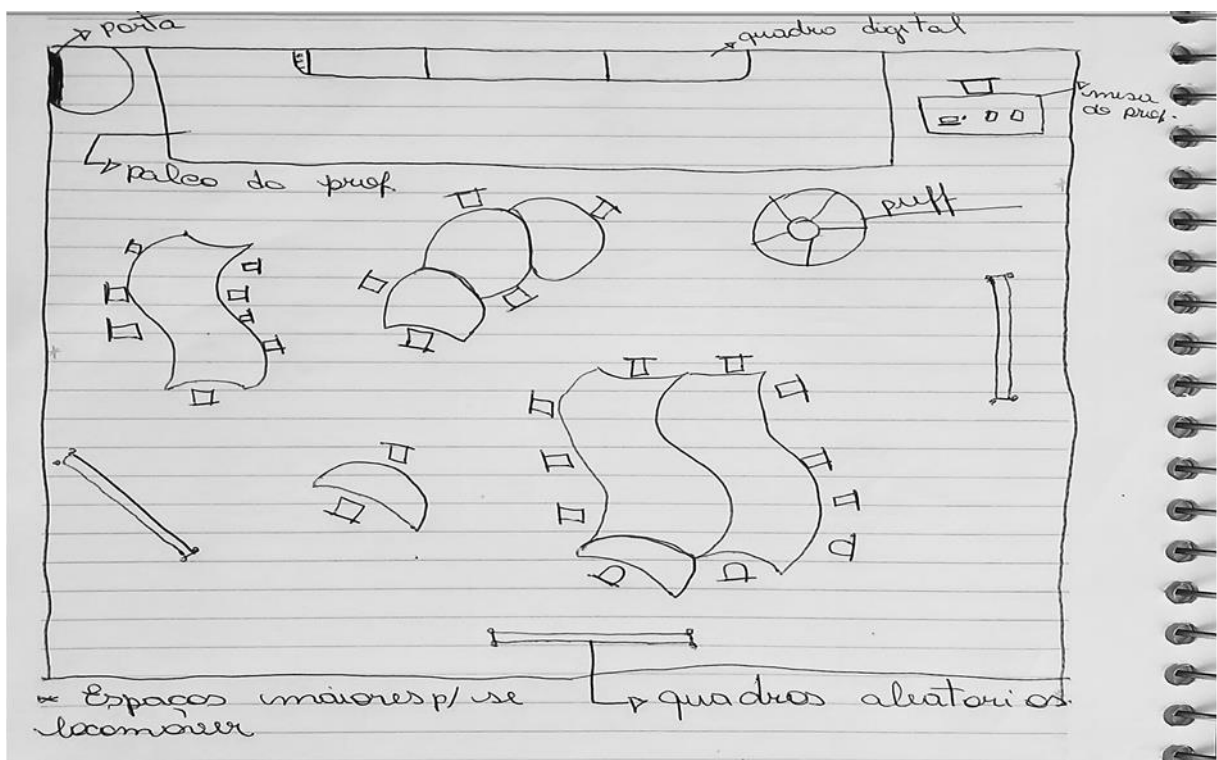 porta
quadro digital
mesa
do prof.
palco do prof
puff
* Espaços maiores p/ se
locomover
quadros aleatorios.